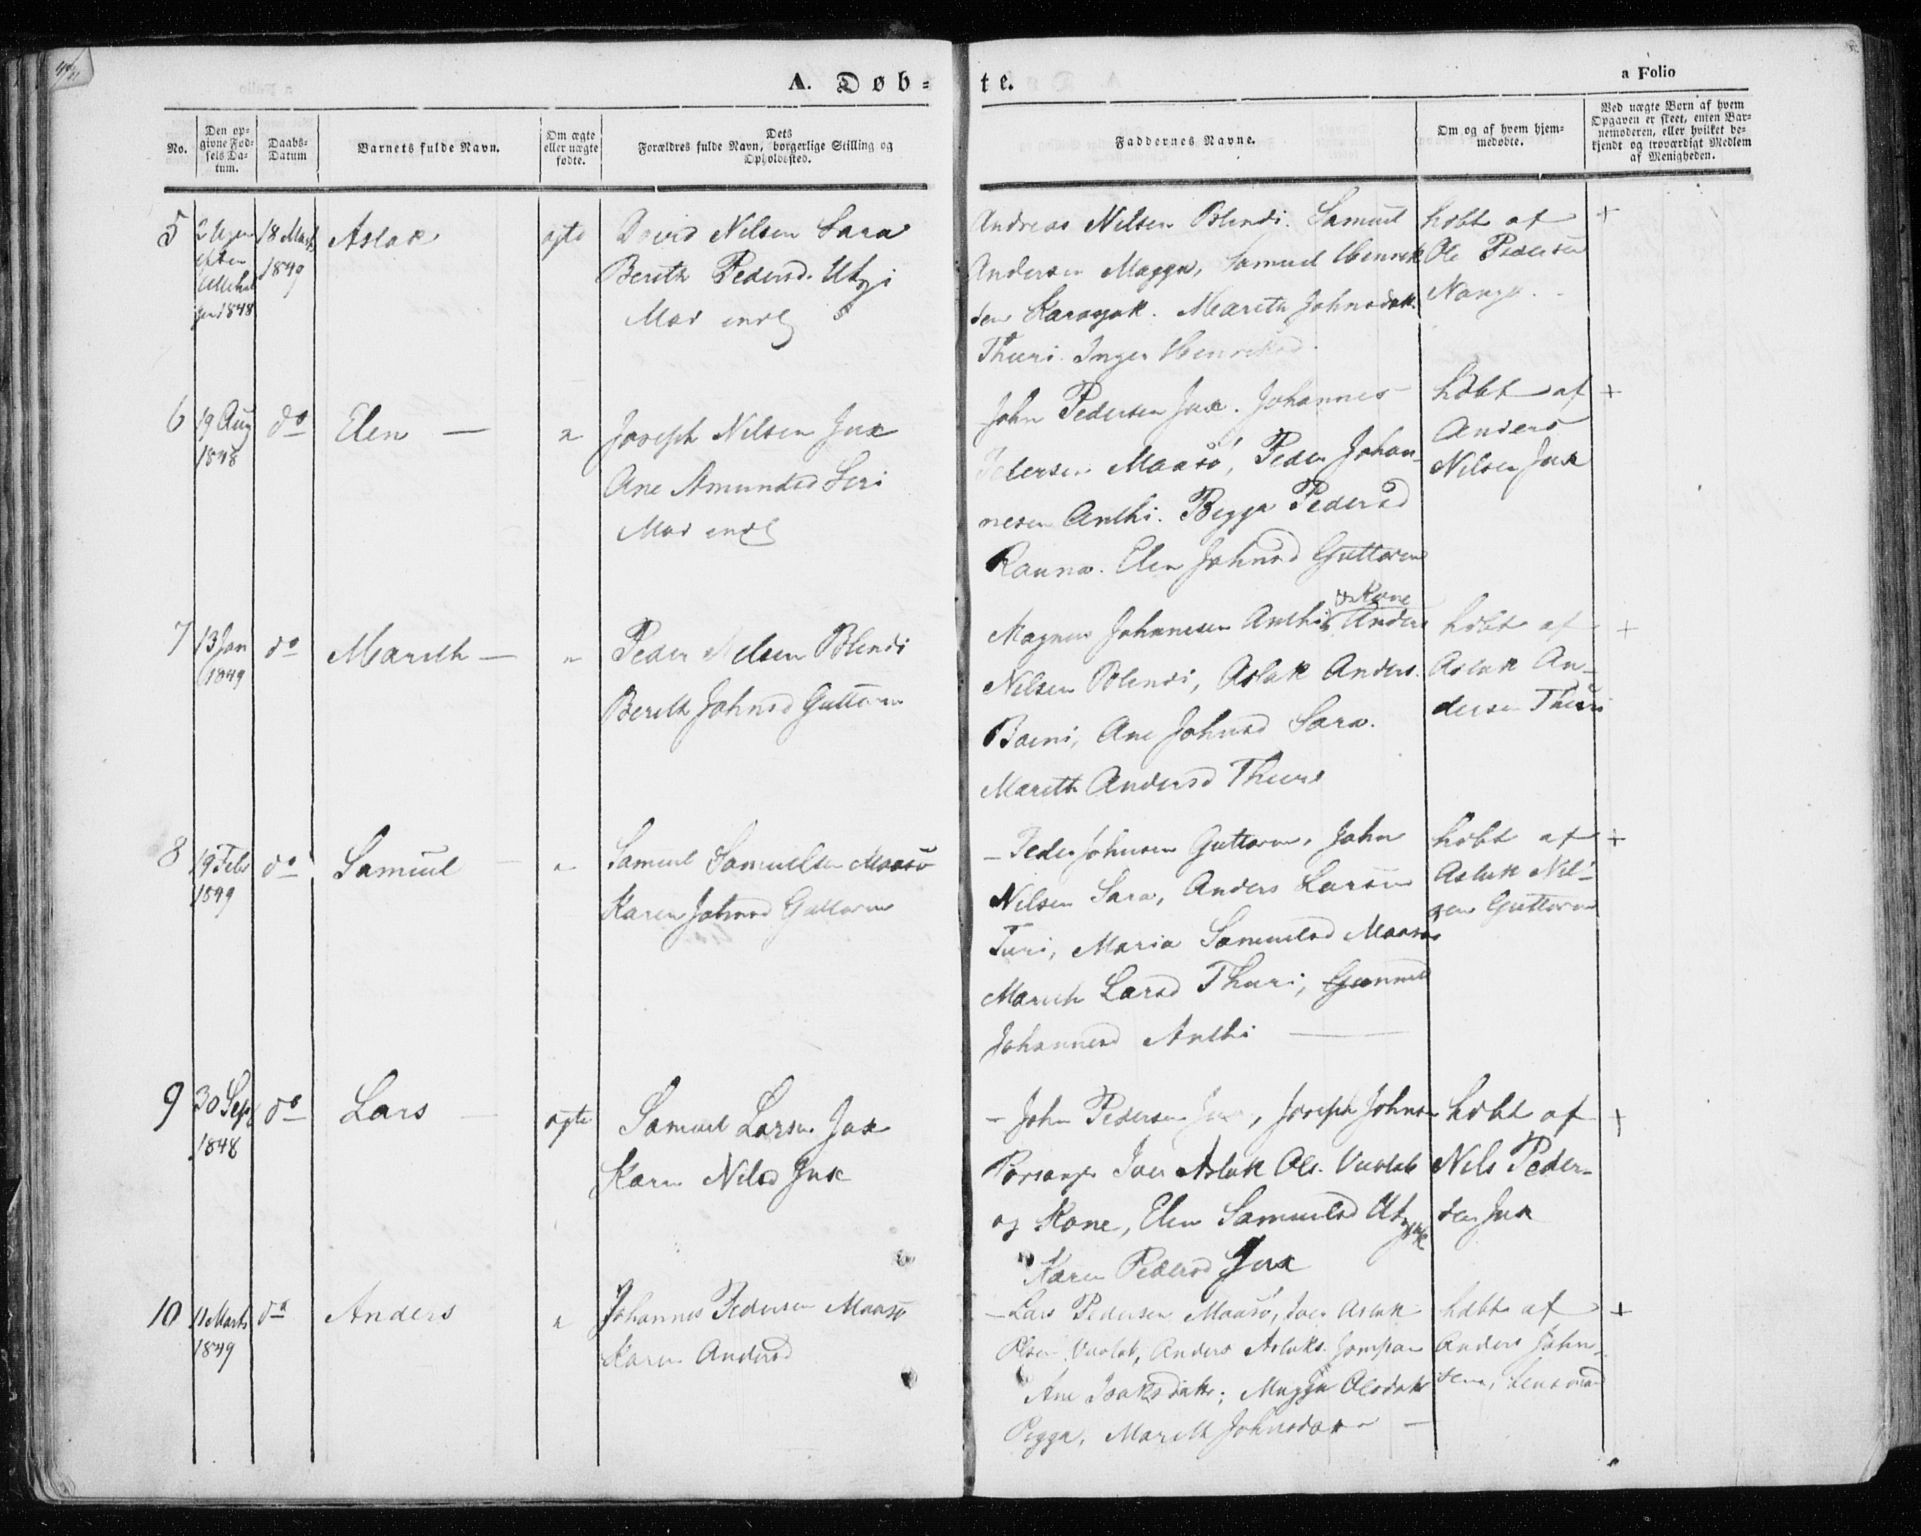 A. Døb=
te.
a Folio
No.
Den op=
givne Fød=
sels Da=
tum.
Daabs=
Datum
Barnets fulde Navn.
Om ægte
eller uægte
fødte.
Dets
Forældres fulde Navn, borgerlige Stilling og
Opholdssted.
Faddernes Navne.
Om og af hvem hjem=
medøbte.
Ved uægte Børn af hvem
Opgaven er skeet, enten Bar=
nemoderen, eller hvilket be=
kjendt og troværdigt Medlem
af Menigheden.
5
2 Uger
efter
1848
18 Marts
1849
Aslak
ægte
David Nilsen Sara
Berith Pedersd. Utzi
Andreas Nilsen Blendi. Samuel
Andersen Magga, Samuel Henrik
sen Karasjok. Marith Johnsdatr.
Thuri. Inger Henriksd.
høbt af
Ole Pedersen
+
6
19 Aug
1848
do
Elen —
"
Joseph Nilsen Jux
Ane Amundsd Siri
John Pedersen Jux. Johannes
Pedersen Maasø, Peder Johan-
nesen Anthi. Bigga Pedersd
Rauna. Elen Johnsd Guttorm
høbt af
Anders
Nilsen Jux
+
7
13 Jan
1849
do
Marith —
"
Peder Nilsen Blendi
Berith Johnsd Guttorm
Magnus Johannesen Anthi & Kone Anders
Nilsen Blendi, Aslak Anders.
Baeni, Ane Johnsd Sara.
Marith Andersd Thuri
høbt af
Aslak An-
dersen Thuri
+
8
19 Febr
1849
do
Samuel
"
Samuel Samuelsen Maasø
Karen Johnsd Guttorm
— Peder Johnsen Guttorm, John
Nilsen Sara, Anders Larsen
Turi, Maria Samuelsd Maasø
Marith Larsd Thuri, Gunnild
Johannesd Anthi —
høbt af
Aslak Nil-
sen Guttorm
+
9
30 Sept
1848
do
Lars —
ægte
Samuel Larsen Jux
Karen Nilsd Jux
— John Pedersen Jux, Joseph Johnsn
Porsanger Iver Aslak Ols. Vuolab
og Kone, Elen Samuelsd Utzjok
Karen Pedersd Jux
høbt af
Nils Peder-
sen Jux
+
10
11 Marts
1849
do
Anders
"
Johannes Pedersen Maasø
Karen Andersd
— Lars Pedersen Maasø, Iver Aslak
Olsen Vuolab, Anders Aslaks. Jompan
Ane Isaksdatr; Magga Olsdatr
Pigga, Marith Johnsdatr —
høbt af
Anders John-
sen,
+